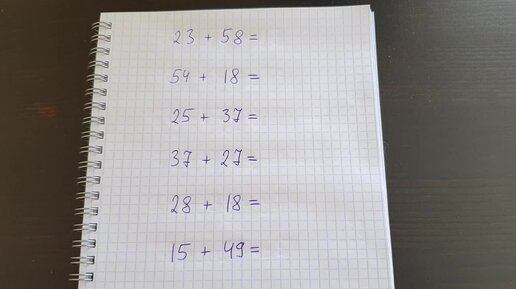 23 + 58 =
54 + 18 =
25 + 37 =
37 + 27 =
28 + 18 =
15 + 49 =